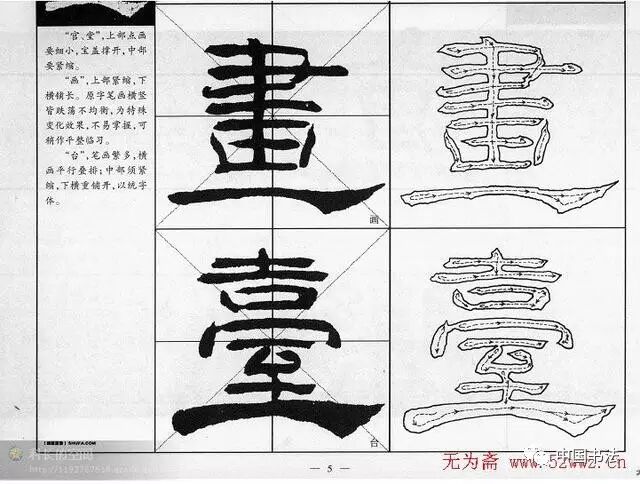 “宫、堂”,上部点画
要细小,宝盖撑开,中部
要紧缩。
“画”,上部紧缩,下
横铺长。原字笔画横竖
皆跌荡不均衡,为特殊
变化效果,不易掌握,可
稍作平整临习。
“台”,笔画繁多,横
画平行叠排;中部须紧
缩,下横重铺开,以统字
体。
畫
画
臺
台
SHUFA.COM
科长的空间
— 5 —
无为斋 www.52wwz.cn
中国书法